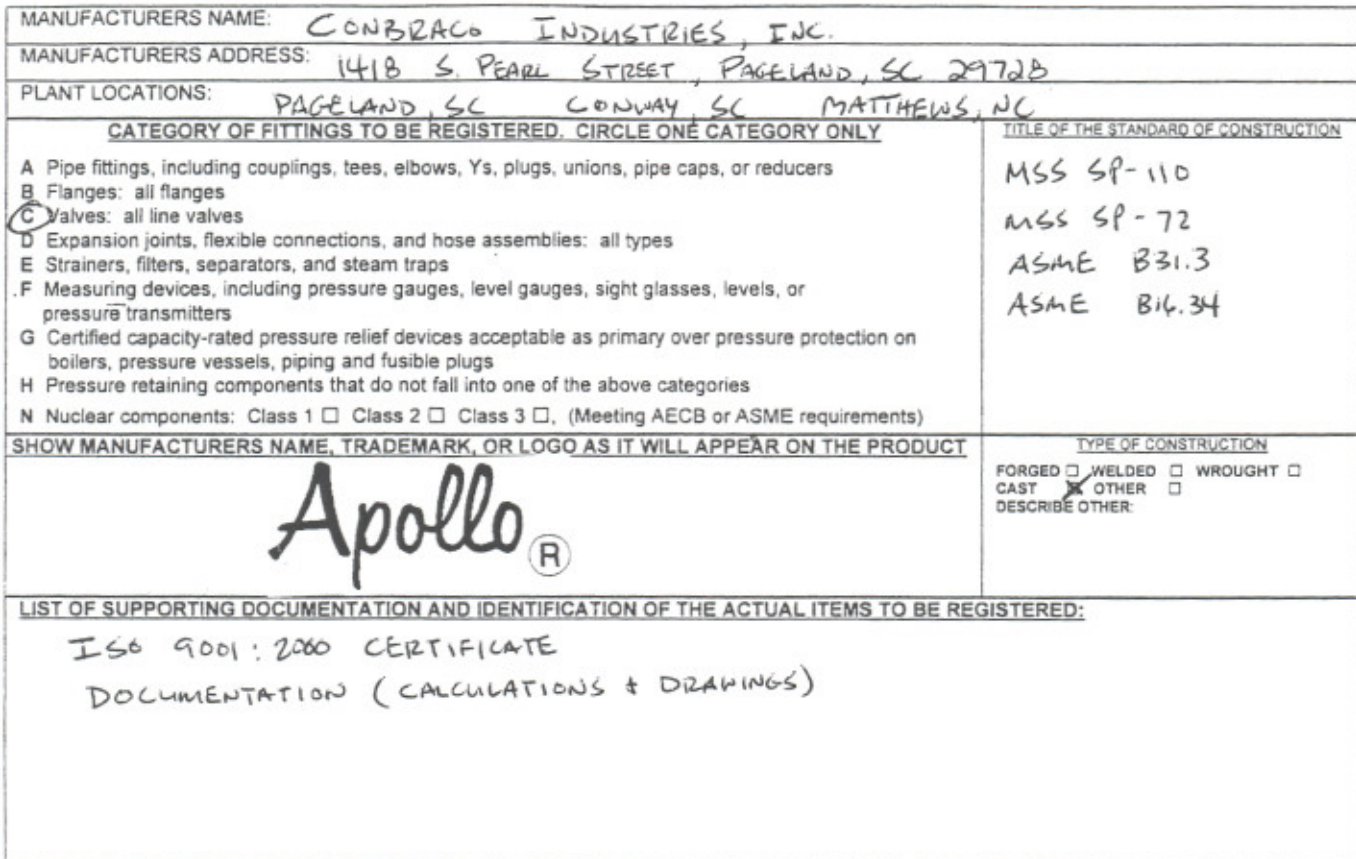 MANUFACTURERS NAME: CONBRACO INDUSTRIES, INC.
MANUFACTURERS ADDRESS: 1418 S. PEARL STREET, PAGELAND, SC 29728
PLANT LOCATIONS: PAGELAND, SC CONWAY, SC MATTHEWS, NC
CATEGORY OF FITTINGS TO BE REGISTERED. CIRCLE ONE CATEGORY ONLY
A Pipe fittings, including couplings, tees, elbows, Ys, plugs, unions, pipe caps, or reducers
B Flanges: all flanges
C Valves: all line valves
D Expansion joints, flexible connections, and hose assemblies: all types
E Strainers, filters, separators, and steam traps
F Measuring devices, including pressure gauges, level gauges, sight glasses, levels, or
pressure transmitters
G Certified capacity-rated pressure relief devices acceptable as primary over pressure protection on
boilers, pressure vessels, piping and fusible plugs
H Pressure retaining components that do not fall into one of the above categories
N Nuclear components: Class 1 ☐ Class 2 ☐ Class 3 ☐, (Meeting AECB or ASME requirements)
TITLE OF THE STANDARD OF CONSTRUCTION
MSS SP-110
MSS SP-72
ASME B31.3
ASME B16.34
SHOW MANUFACTURERS NAME, TRADEMARK, OR LOGO AS IT WILL APPEAR ON THE PRODUCT
Apollo ®
TYPE OF CONSTRUCTION
FORGED ☐ WELDED ☐ WROUGHT ☐
CAST ☒ OTHER ☐
DESCRIBE OTHER:
LIST OF SUPPORTING DOCUMENTATION AND IDENTIFICATION OF THE ACTUAL ITEMS TO BE REGISTERED:
ISO 9001:2000 CERTIFICATE
DOCUMENTATION (CALCULATIONS + DRAWINGS)